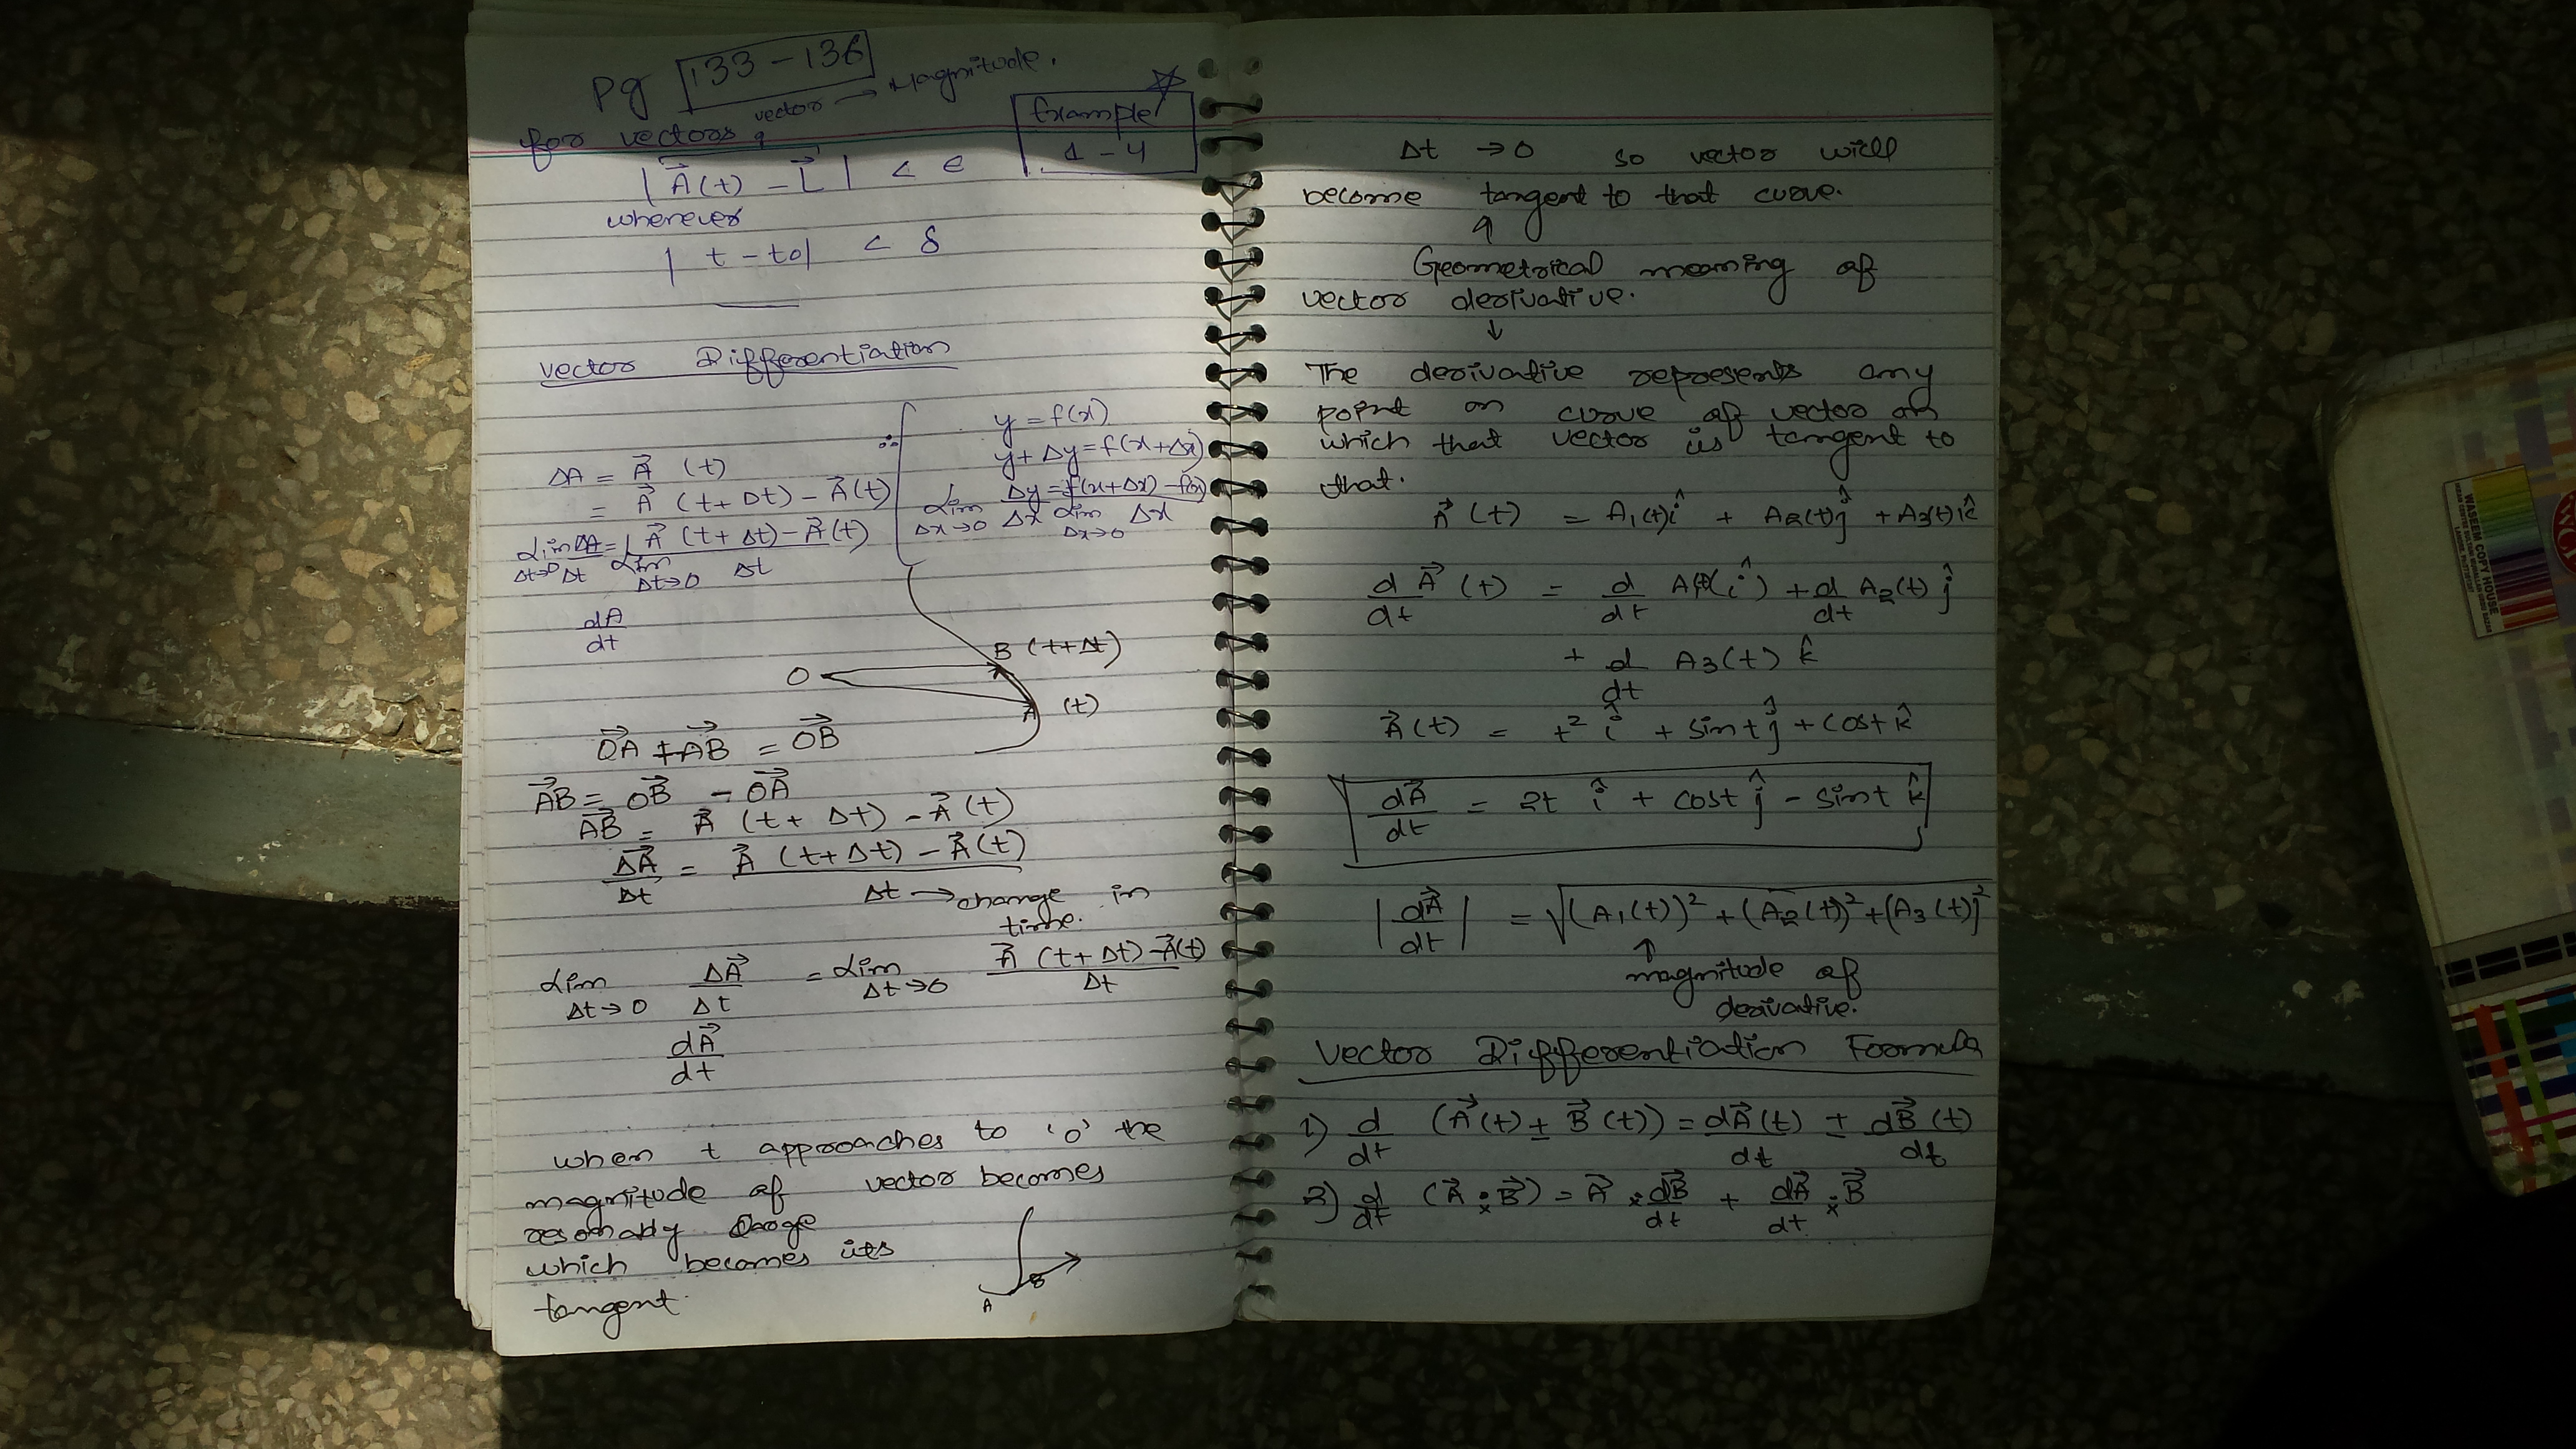 Pg 133 - 136
vector → Magnitude.
for vectors,
Example
1 - 4
|A⃗(t) - L⃗| < ϵ
whenever
| t - to| < δ
vector Differentiation
∴ y = f(x)
y + Δy = f(x + Δx)
Lim Δx→0 Δy/Δx = Lim Δx→0 f(x+Δx) - f(x) / Δx
ΔA = A⃗ (t)
= A⃗ (t + Δt) - A⃗(t)
Lim Δt→0 ΔA/Δt = Lim Δt→0 A⃗ (t + Δt) - A⃗(t) / Δt
dA/dt
B (t+Δt)
O
A (t)
O⃗A + A⃗B = O⃗B
A⃗B = O⃗B - O⃗A
A⃗B = A⃗ (t + Δt) - A⃗(t)
ΔA⃗/Δt = A⃗ (t + Δt) - A⃗(t) / Δt → change in
time.
Lim Δt→0 ΔA⃗/Δt = Lim Δt→0 A⃗ (t + Δt) - A⃗(t) / Δt
dA⃗/dt
when t approaches to '0' the
magnitude of vector becomes
which becomes its
tangent.
A B
Δt → 0 so vector will
become tangent to that curve.
Geometrical meaning of
vector derivative.
↓
The derivative represents any
point on curve of vector on
which that vector is tangent to
that.
A⃗ (t) = A1(t)î + A2(t)ĵ + A3(t)k̂
d/dt A⃗ (t) = d/dt A1(t)(î) + d/dt A2(t) ĵ
+ d/dt A3(t) k̂
A⃗(t) = t² î + sint ĵ + cost k̂
dA⃗/dt = 2t î + cost ĵ - sint k̂
|dA⃗/dt| = √(A1(t))² + (A2(t))² + (A3(t))²
↑
magnitude of
derivative.
Vector Differentiation Formula
1) d/dt (A⃗(t) ± B⃗(t)) = dA⃗(t)/dt ± dB⃗(t)/dt
2) d/dt (A⃗ ·× B⃗) = A⃗ ·× dB⃗/dt + dA⃗/dt ·× B⃗
WASEEM COPY HOUSE